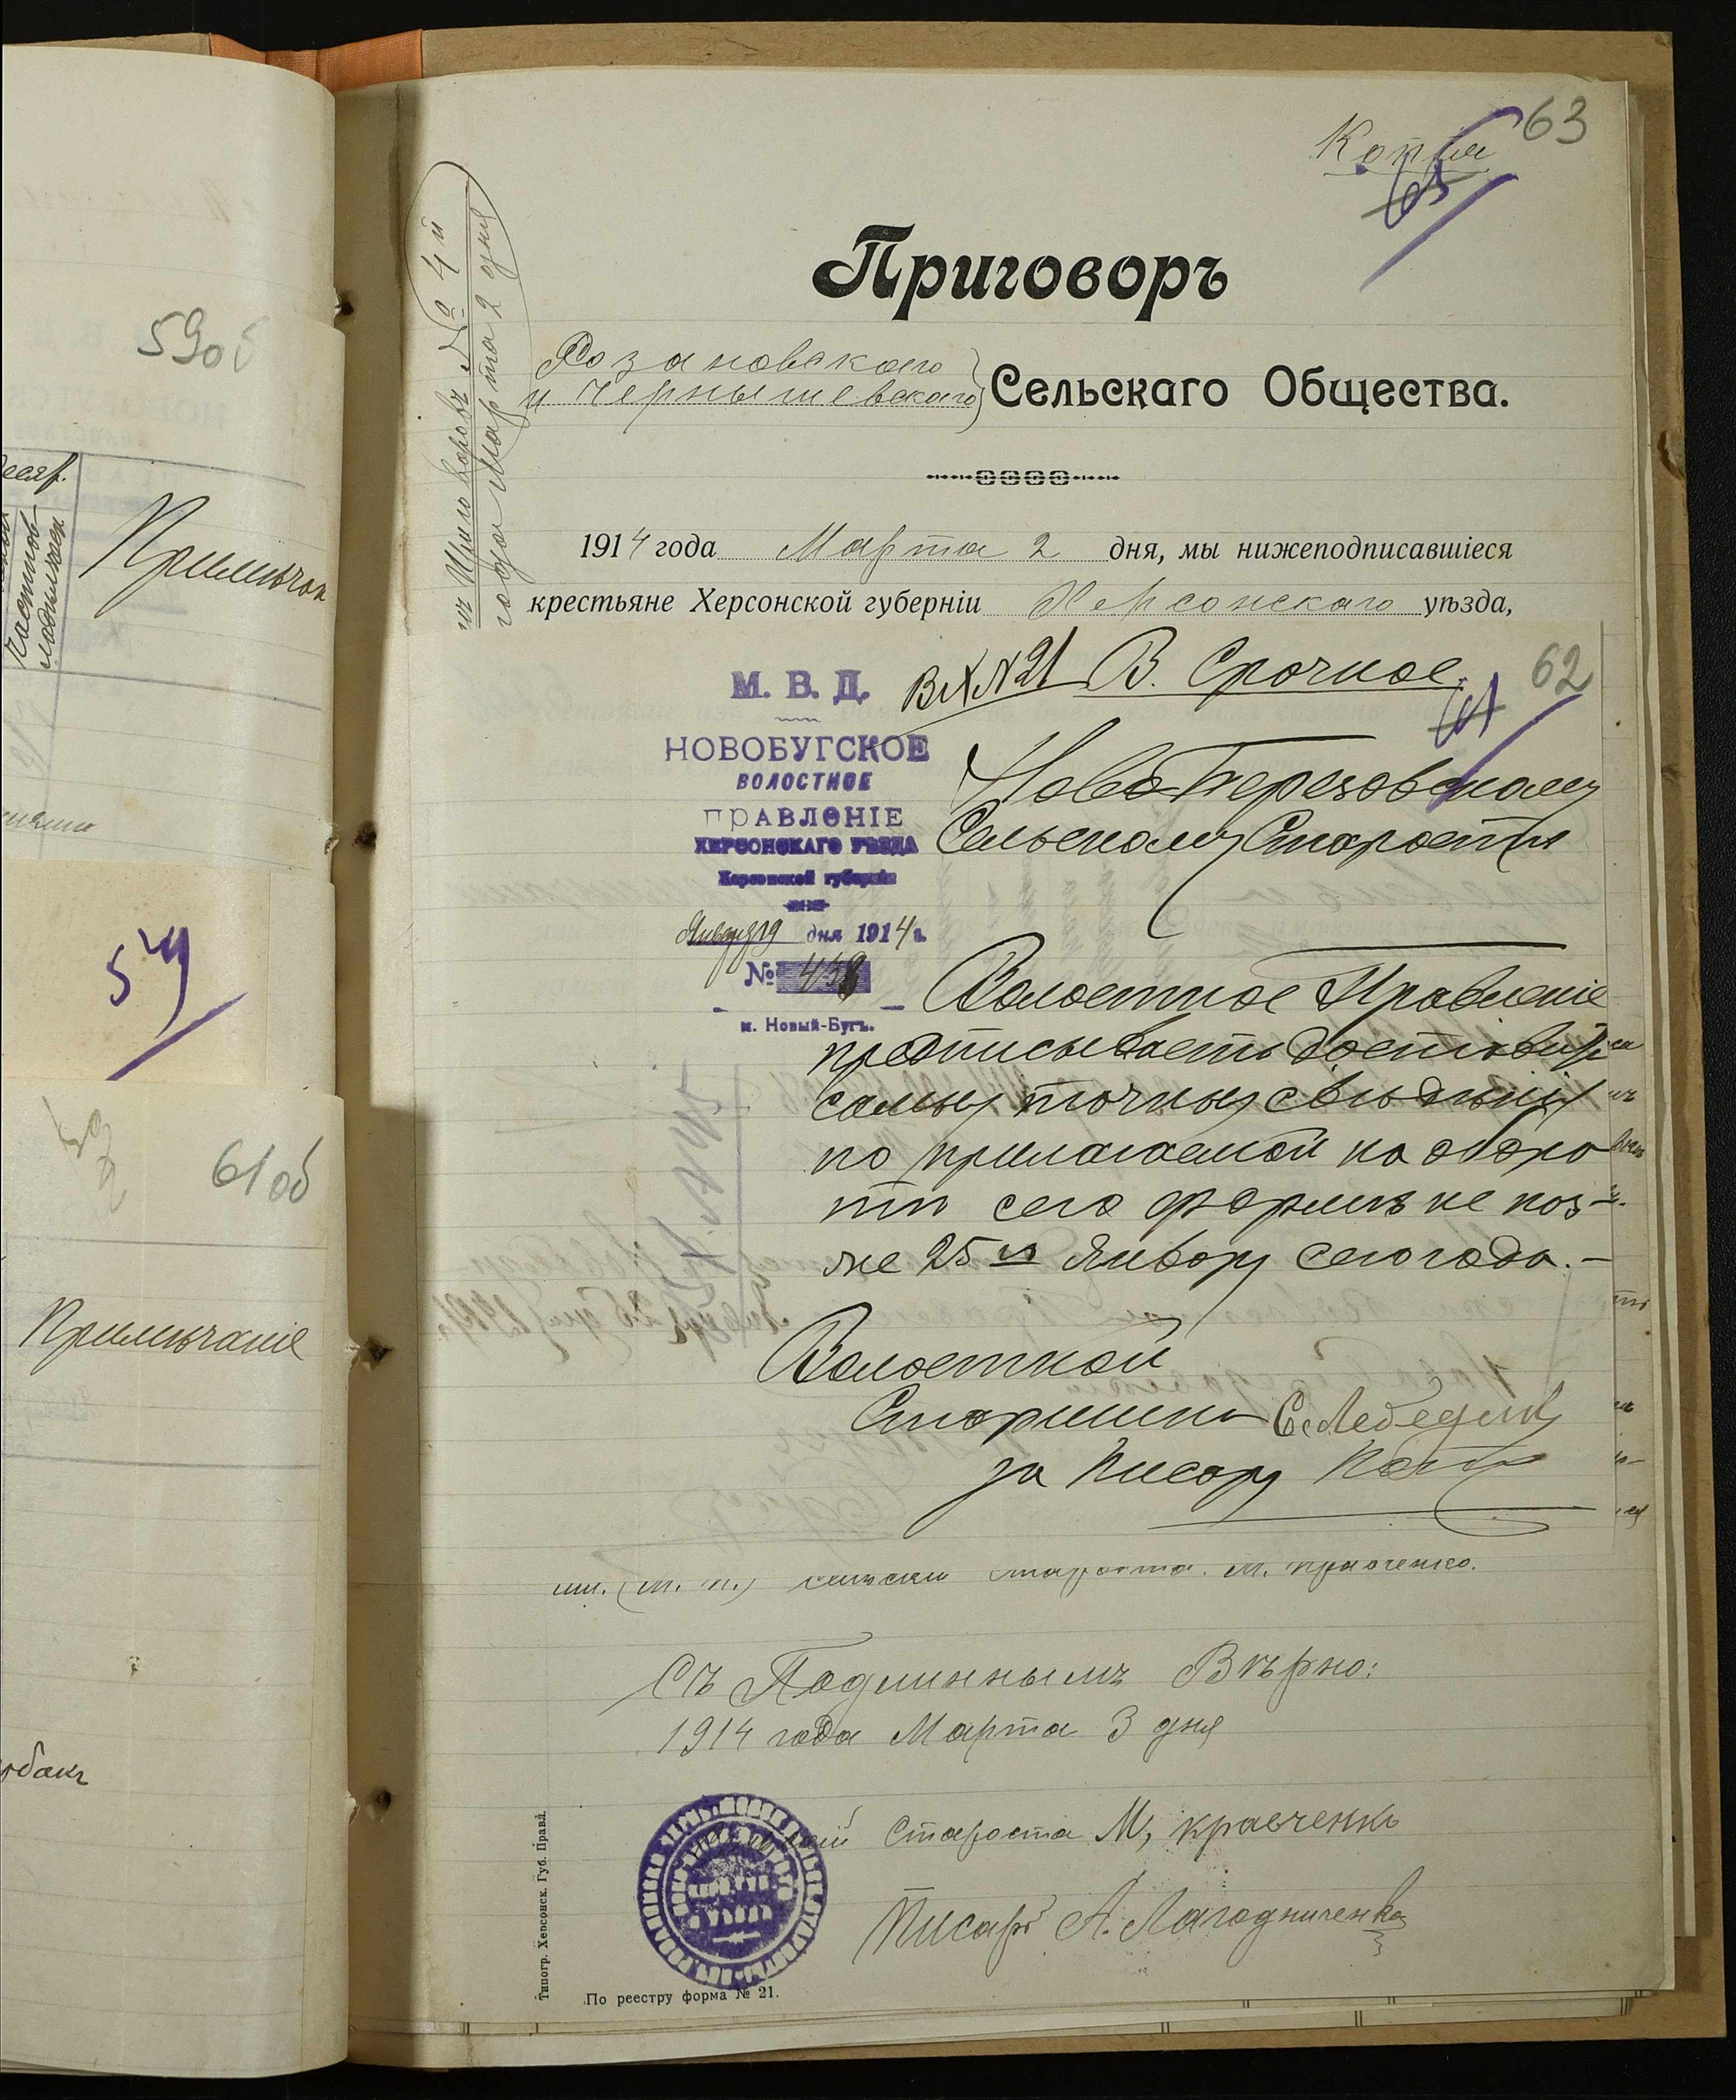 59об
Примѣчан
54
61об
Примѣчаніе
Копія
63
65
Приговоръ
Розановскаго
и Чернышевскаго
Сельскаго Общества.
№ 4й
года Марта 2 дня
1914 года Марта 2 дня, мы нижеподписавшіеся
крестьяне Херсонской губерніи Херсонскаго уѣзда,
М. В. Д.
НОВОБУГСКОЕ
ВОЛОСТНОЕ
ПРАВЛЕНІЕ
ХЕРСОНСКАГО УѢЗДА
Херсонской губерніи
Января 19 дня 1914 г.
№ 438
м. Новый-Бугъ.
Вх № 21 В. Срочное.
62
61
Ново Березовскому
Сельскому Старостѣ
Волостное Правленіе
предписываетъ доставить
самыя точныя свѣдѣнія
по прилагаемой на оборо
тѣ сего формѣ не поз-
же 25го Января сего года. –
Волостной
Старшина С. Лебедевъ
за Писаря
(М. П.) сельскій староста М. Кравченко.
Съ Подлиннымъ Вѣрно:
1914 года Марта 3 дня
Староста М, кравченко
Писарь А. Лагодниченко
Типогр. Херсонск. Губ. Правл.
По реестру форма № 21.